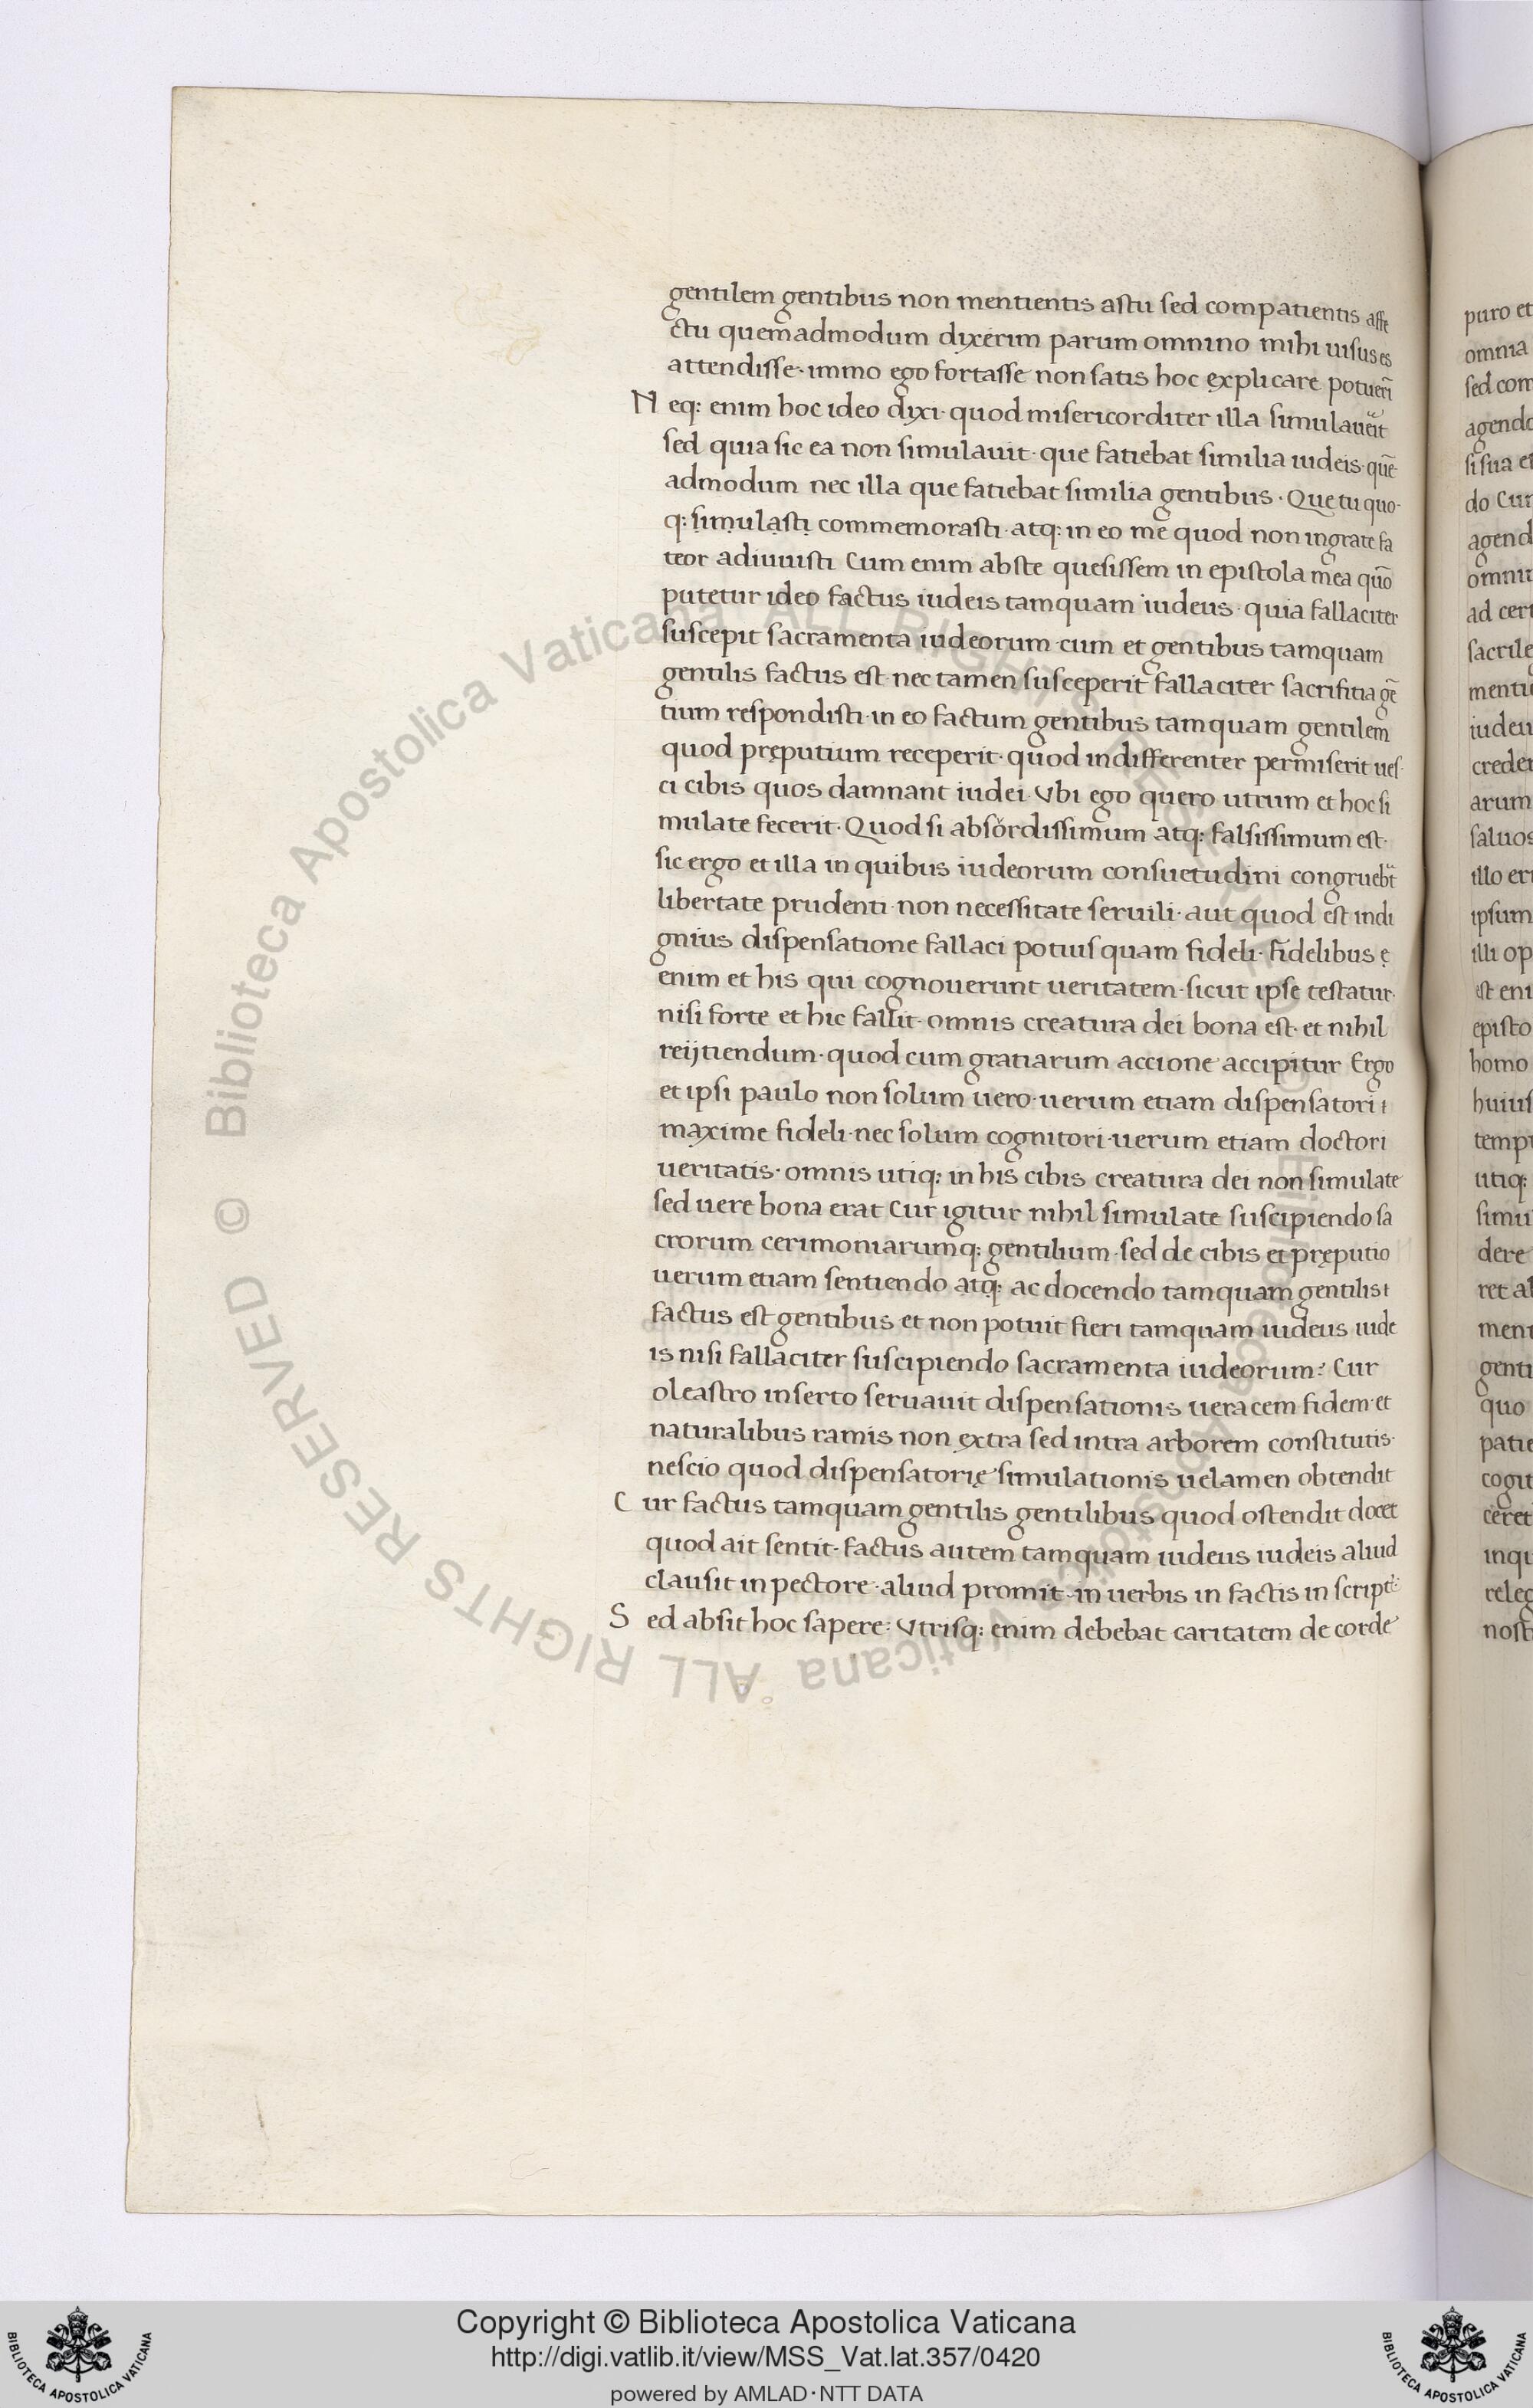 gentilem gentibus non mentientis astu sed compatientis affe
ctu quemadmodum dixerim parum omnino mihi uisus es
attendisse· immo ego fortasse non satis hoc explicare potueri̅
N eq: enim hoc ideo dixi· quod misericorditer illa simulauerit
sed quia sic ea non simulauit· que fatiebat similia iudeis· que̅
admodum nec illa que fatiebat similia gentibus· Que tu quo·
q: simulasti commemorasti· atq: in eo me quod non ingrate fa
teor adiuuisti Cum enim abste quesissem in epistola mea quo̅
putetur ideo factus iudeis tamquam iudeus· quia fallaciter
suscepit sacramenta iudeorum· cum et gentibus tamquam
gentilis factus est· nec tamen susceperit fallaciter sacrifitia ge̅
tium respondisti· in eo factum gentibus tamquam gentilem
quod pręputium receperit· quod indifferenter permiserit ues·
ci cibis quos damnant iudei· Vbi ego quero utrum et hoc si
mulate fecerit· Quod si absordissimum atq: falsissimum est·
sic ergo et illa in quibus iudeorum consuetudini congruebat
libertate prudenti· non necessitate seruili· aut quod est indi
gnius dispensatione fallaci potius quam fideli· Fidelibus ę
enim et his qui cognouerunt ueritatem· sicut ipse testatur·
nisi forte et hic fallit· omnis creatura dei bona est· et nihil
reijtiendum· quod cum gratiarum accione accipitur Ergo
et ipsi paulo non solum uero· uerum etiam dispensatori
maxime fideli· nec solum cognitori· uerum etiam doctori
ueritatis· omnis utiq: in his cibis creatura dei non simulate
sed uere bona erat Cur igitur nihil simulate suscipiendo sa
crorum cerimoniarumq: gentilium· sed de cibis et pręputio
uerum etiam sentiendo atq: ac docendo tamquam gentilis
factus est gentibus· et non potuit fieri tamquam iudeus iude
is nisi fallaciter suscipiendo sacramenta iudeorum? Cur
oleastro inserto seruauit dispensationis ueracem fidem· et
naturalibus ramis non extra sed intra arborem constitutis·
nescio quod dispensatorię simulationis uelamen obtendit
C ur factus tamquam gentilis gentilibus quod ostendit docet
quod ait sentit· factus autem tamquam iudeus iudeis aliud
clausit in pectore· aliud promit· in uerbis in factis in script
S ed absit hoc sapere: Vtrisq: enim debebat caritatem de corde
puro et
omnia
sed com
agendo
si sua et
do Cur
agend
ad cert
sacrile
iudeu
creder
arum
saluos
illo er
ipsum
illi op
est eni
episto
homo
huius
temp
utiq:
simu
dere
ret al
ment
genti
quo
patie
cogit
ceret
inqu
releg
nost
© Biblioteca Apostolica Vaticana ALL RIGHTS RESERVED
© Biblioteca Apostolica Vaticana ALL RIGHTS RESERVED
Copyright © Biblioteca Apostolica Vaticana
http://digi.vatlib.it/view/MSS_Vat.lat.357/0420
powered by AMLAD·NTT DATA
BIBLIOTECA APOSTOLICA VATICANA
BIBLIOTECA APOSTOLICA VATICANA